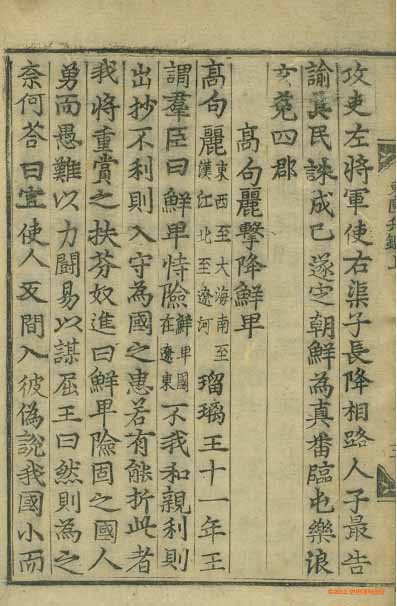 攻吏左將軍使右渠子長降相路人子最告
諭其民誅成己遂定朝鮮為真番臨屯樂浪
玄菟四郡
高句麗擊降鮮卑
高句麗東西至大海南至漢江北至遼河瑠璃王十一年王
謂羣臣曰鮮卑恃險鮮卑國在遼東不我和親利則
出抄不利則入守為國之患若有能折此者
我將重賞之扶芬奴進曰鮮卑險固之國人
勇而愚難以力鬪易以謀屈王曰然則為之
奈何荅曰宜使人反間入彼偽說我國小而